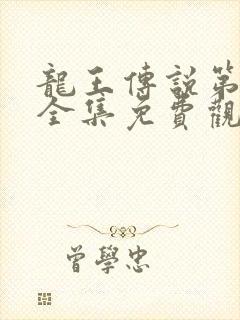 龍王傳說第
全集免費觀
曾學忠